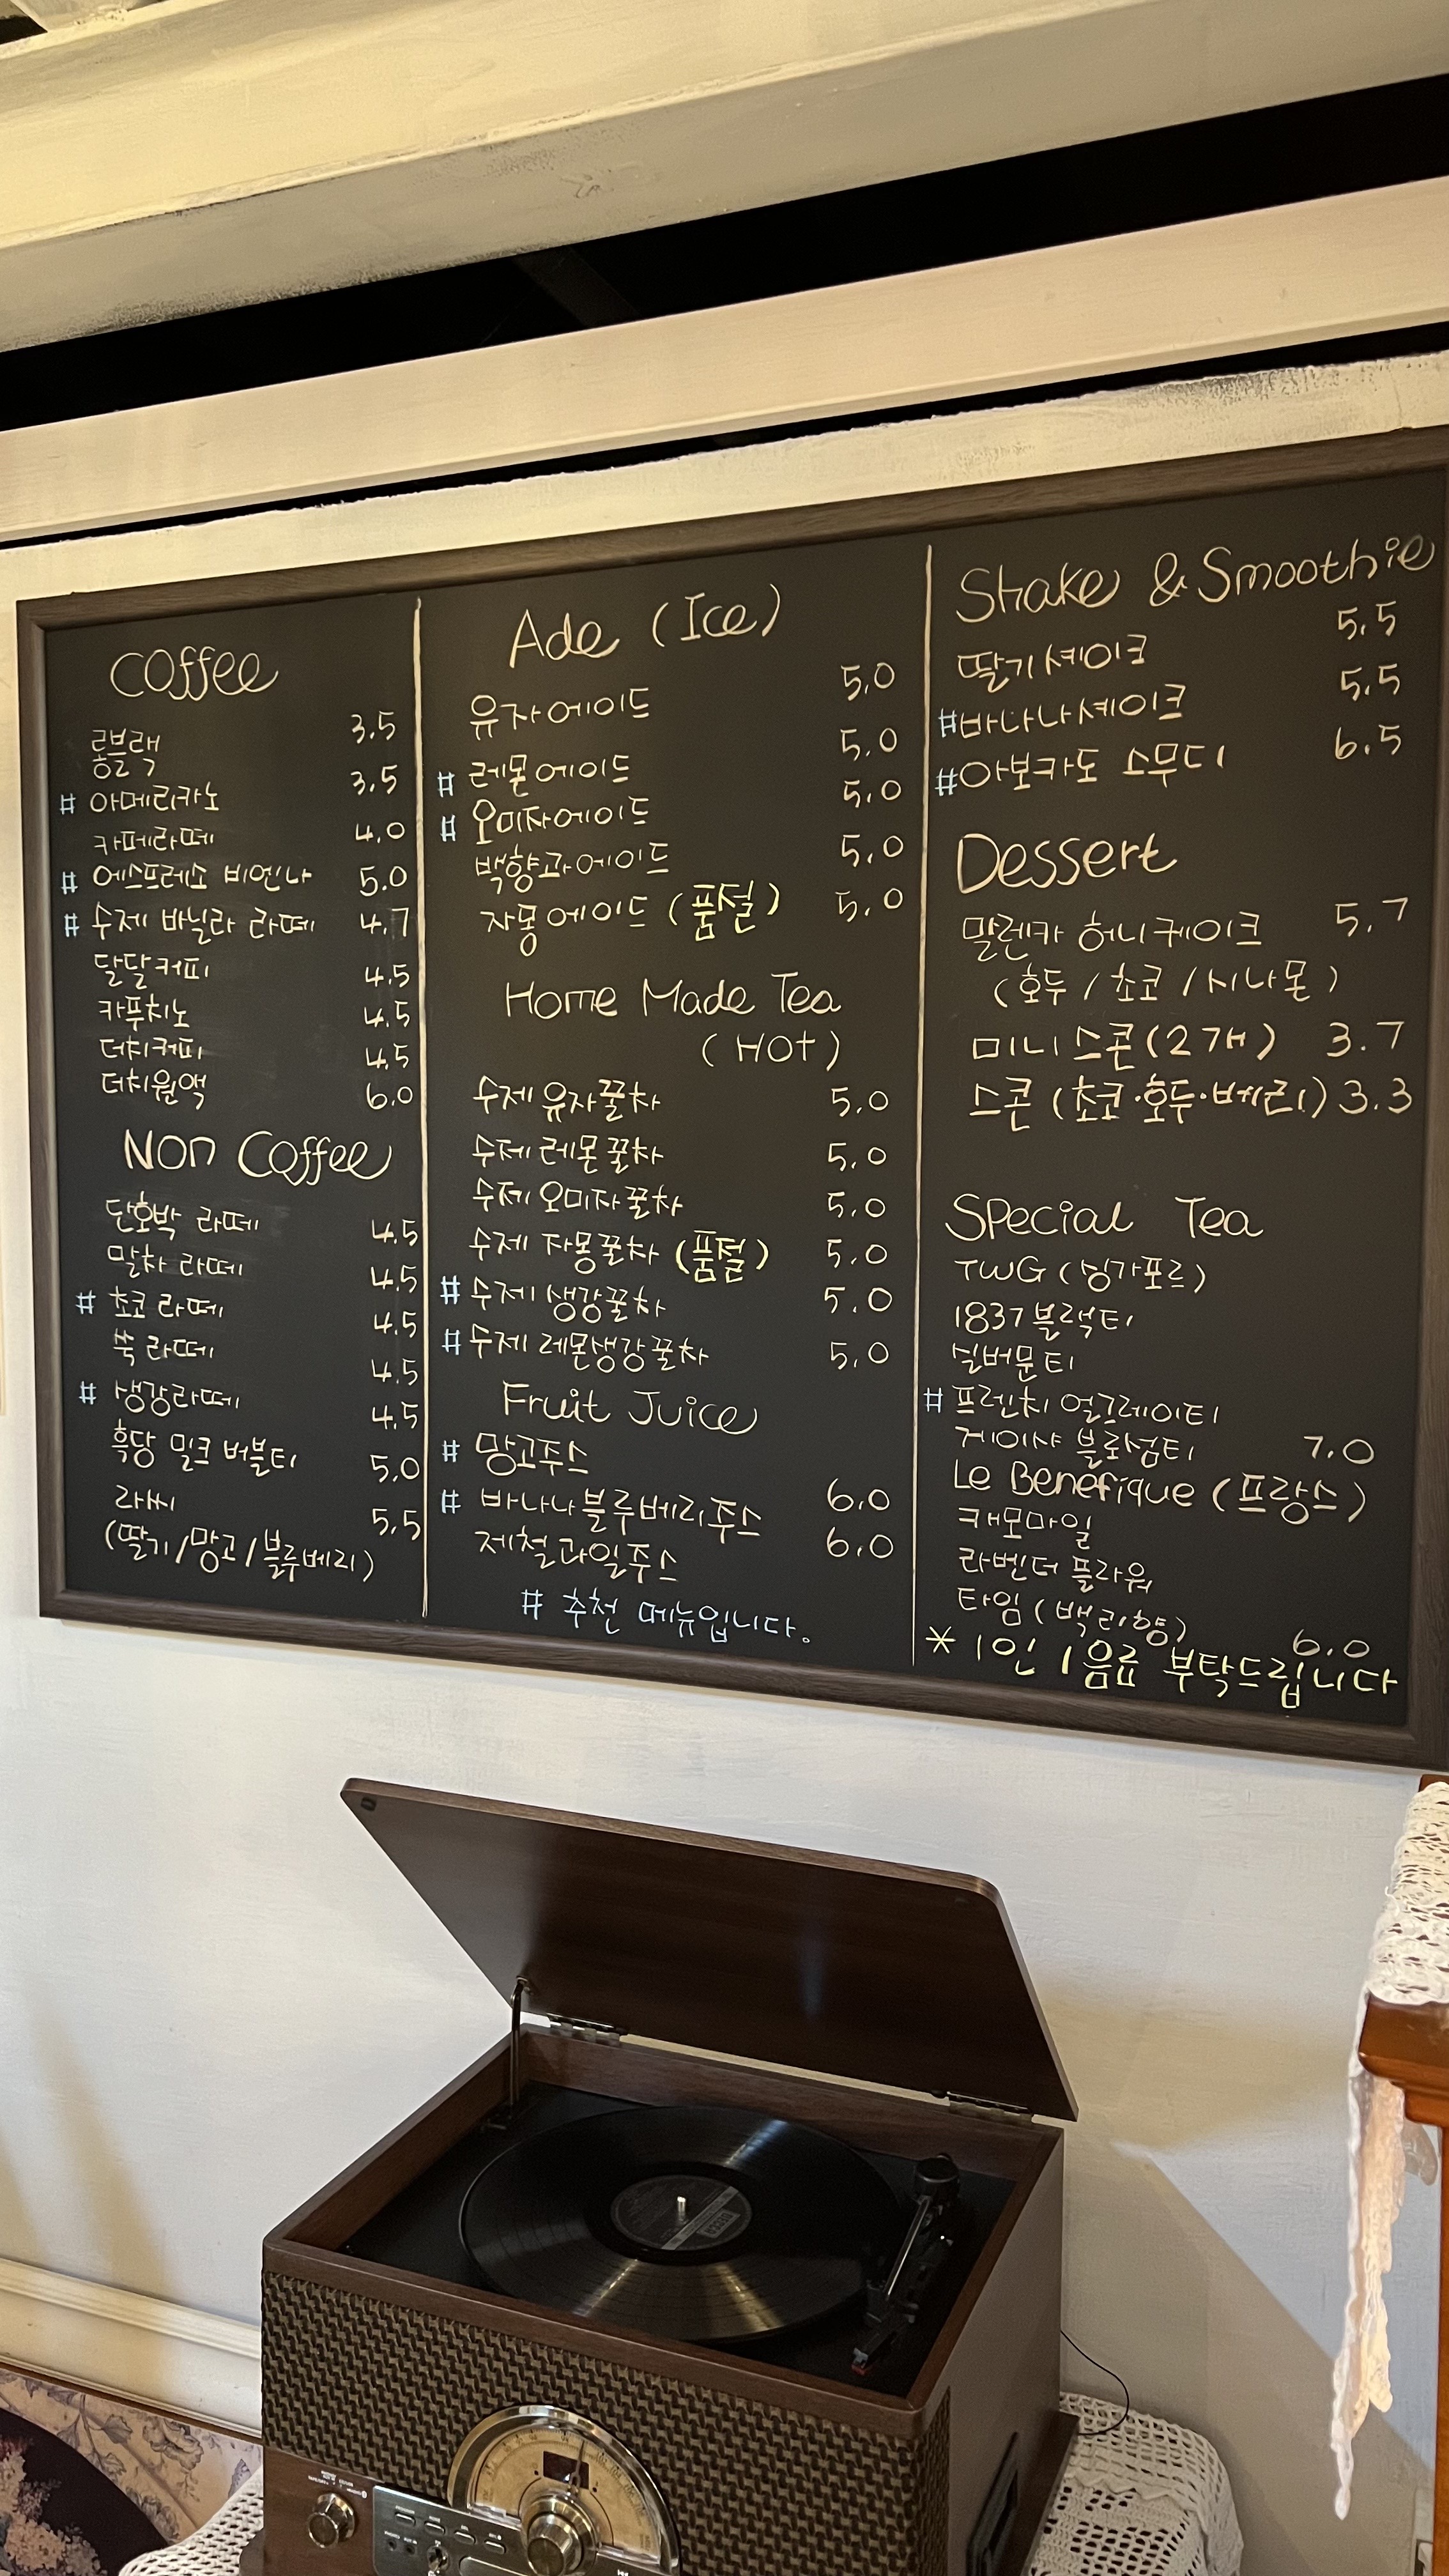 Coffee
롱블랙 3.5
# 아메리카노 3.5
카페라떼 4.0
# 에스프레소 비엔나 5.0
# 수제 바닐라 라떼 4.7
달달커피 4.5
카푸치노 4.5
더치커피 4.5
더치원액 6.0
Non Coffee
단호박 라떼 4.5
말차 라떼 4.5
# 초코 라떼 4.5
쑥 라떼 4.5
# 생강라떼 4.5
흑당 밀크 버블티 5.0
라씨 5.5
(딸기/망고/블루베리)
Ade (Ice)
유자에이드 5.0
# 레몬에이드 5.0
# 오미자에이드 5.0
백향과에이드 5.0
자몽에이드 (품절) 5.0
Home Made Tea
(HOt)
수제 유자꿀차 5.0
수제 레몬꿀차 5.0
수제 오미자꿀차 5.0
수제 자몽꿀차 (품절) 5.0
# 수제 생강꿀차 5.0
# 수제 레몬생강꿀차 5.0
Fruit Juice
# 망고주스
# 바나나블루베리주스 6.0
제철과일주스 6.0
# 추천 메뉴입니다.
Shake & Smoothie
딸기셰이크 5.5
#바나나셰이크 5.5
#아보카도 스무디 6.5
Dessert
말렌카 허니케이크 5.7
(호두/초코/시나몬)
미니스콘(2개) 3.7
스콘(초코·호두·베리) 3.3
Special Tea
TWG (싱가포르)
1837블랙티
실버문티
# 프렌치 얼그레이티
게이샤 블로섬티 7.0
Le Benefique (프랑스)
캐모마일
라벤더 플라워
타임(백리향) 6.0
* 1인 1음료 부탁드립니다
DECCA